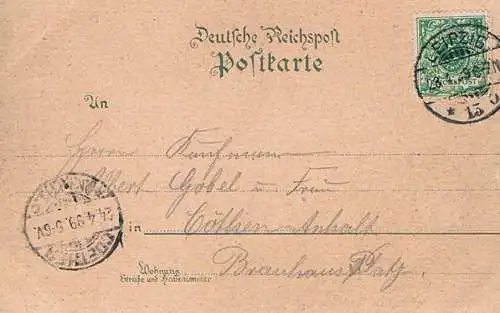 Deutsche Reichspost
Postkarte
LEIPZIG
13
An
Herrn Kaufmann
Albert Göbel u. Frau
24.4.99.5-6V.
in Cöthen Anhalt
Wohnung
Straße und Hausnummer
Brauhaus Platz